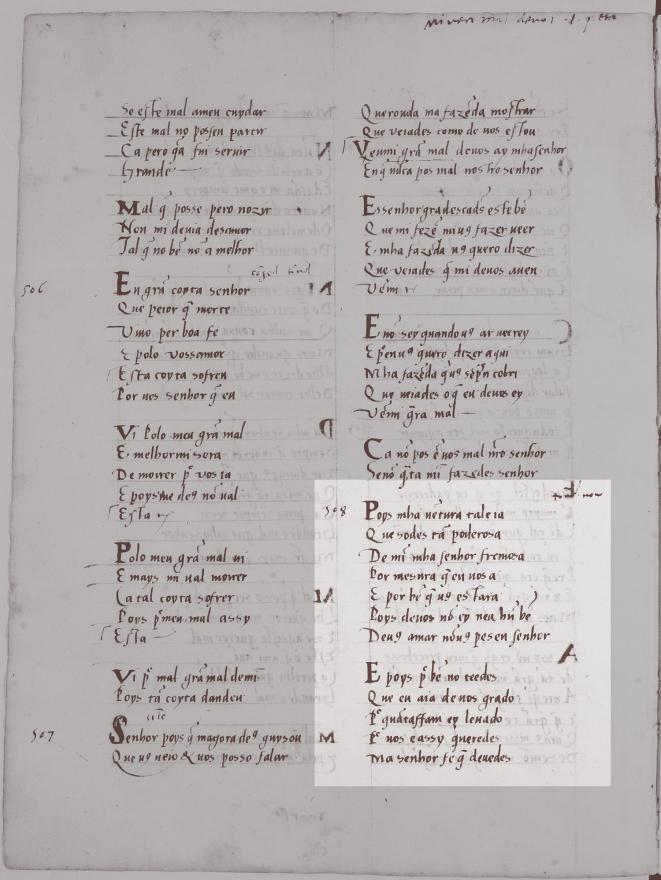 So este mal a meu cuydar
Este mal nō possen partir
Ca pero q̄a fui servir
Grande
Mal q̄ posse pero nozir
Non mi devia desamor
Tal q̄ no bē nō a melhor
506
En grā coyta senhor
Que peior q̄ morte
Vivo per boa fe
E polo vossamor
Esta coyta sofreu
Por vos senhor q̄ eu
Vi Polo meu grā mal
E melhor mi sera
De moirer pͬ vos ia
E poys me deꝯ nō val
Esta
Polo meu grā mal vi
E mays mi val moirer
Ca tal coyta sofrer
Poys pͬ meu mal assy
Esta
Vi pͬ mal grā mal de mī
Poys tā coyta dandeu
507
Senhor poys q̄ magora deꝯ guysou
Que vꝯ veio & vos posso falar
Quero uda ma fazēda mostrar
Que veiades como de vos estou
Vemi grā mal de vos ay mha senhor
En q̄ nūca pos mal nostro senhor
E ssenhor gradescads este bē
Que mi fezē mi vꝯ fazer veer
E mha fazēda vꝯ quero dizer
Que veiades q̄ mi de vos aven
Vēm
E nō sey quando vꝯ ar veerey
E pͬ en vꝯ quero dizer aqui
Mha fazēda q̄ vꝯ sēpͬn cobri
Que veiades o q̄ eu de vos ey
Vēmi g̃ra mal
Ca nō pos ē vos mal nr̄o senhor
Senō q̄ta mī fazedes senhor
508
Poys mha vētura tal e ia
Que sodes tā poderosa
De mī mha senhor fremosa
Por mesura q̄ en vos a
E por bē q̄ vꝯ estara
Poys de vos nō ey nēhū bē
De vꝯ amar nō vꝯ pes en senhor
E poys pͬ bē nō teedes
Que eu aia de vos grado
Pͬ quātaffam ey levado
Pͬ vos e assy q̄redes
Ma senhor fe q̄ devedes